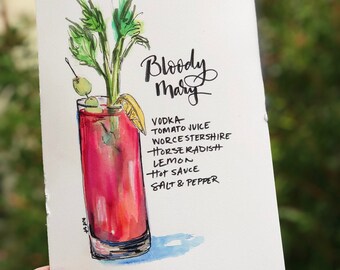 Bloody
Mary
VODKA
TOMATO JUICE
WORCESTERSHIRE
HORSERADISH
LEMON
HOT SAUCE
SALT & PEPPER